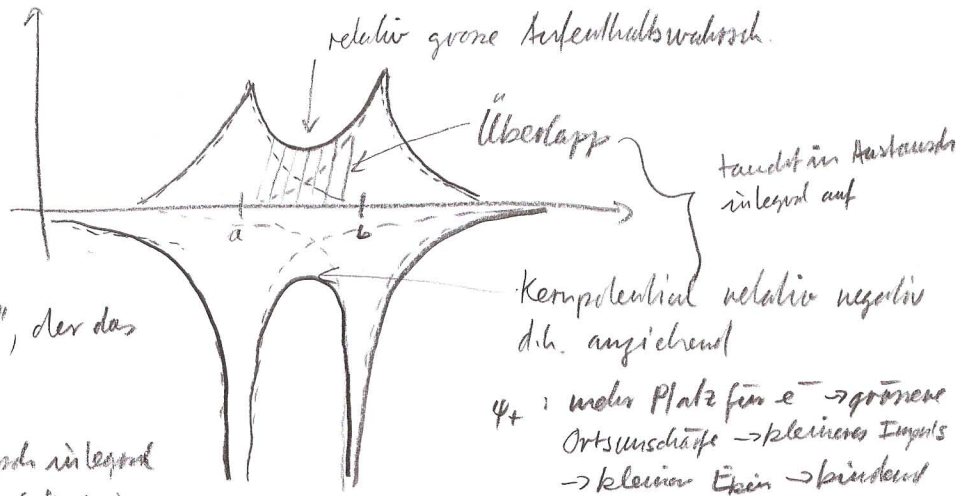 relativ grosse Aufenthaltswahrsch.
Überlapp
taucht in Austausch
integral auf
a
b
Kernpotential relativ negativ
d.h. anziehend
", der das
ψ₊ : mehr Platz für e⁻ → grössere
Ortsunschärfe → kleineres Impuls
sch integral
→ kleinere Ekin → bindend